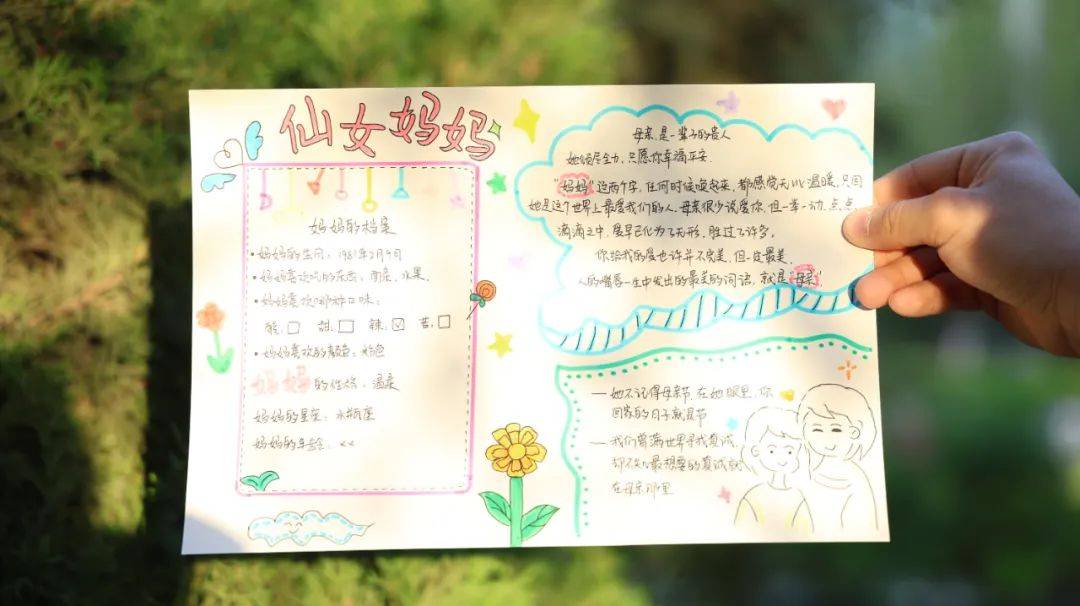 仙女妈妈
妈妈的档案
·妈妈的生日:1981年2月9日
·妈妈喜欢吃的东西:面食、水果
·妈妈喜欢哪种口味:
酸:□ 甜:□ 辣:☑ 苦:□
·妈妈喜欢的颜色:粉色
妈妈的性格:温柔
妈妈的星座:水瓶座
妈妈的年龄:
母亲是一辈子的贵人
她倾尽全力,只愿你幸福平安.
"妈妈"这两个字,任何时候唤起来,都感觉无比温暖,只因
她是这个世界上最爱我们的人.母亲很少说爱你,但一举一动,点点
滴滴之中,爱早已化为了无形,胜过了许多。
你给我的爱也许并不完美,但一定最美.
人的嘴唇一生中发出的最美的词语,就是"母亲".
— 她不记得母亲节,在她眼里,你
回家的日子就是节
— 我们曾满世界寻找真诚,
却不知最想要的真诚就
在母亲那里